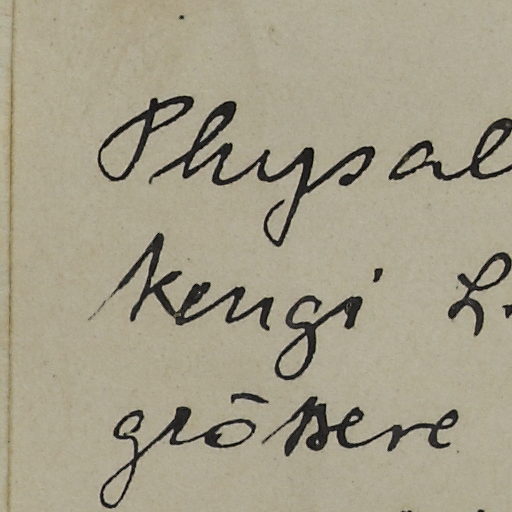 Physal
kengi L.
grössere